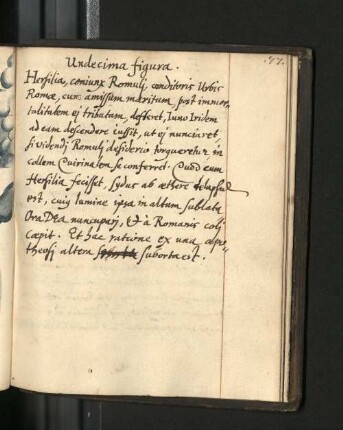 77.
Undecima figura.
Hersilia, coniunx Romulj, conditoris Urbis
Romæ, cum amissum maritum, post immor-
talitatem ej tributam, defleret, Iuno Iridem
ad eam descendere iussit, ut ej nunciaret
si videndj Romulj desiderio torqueretur in
collem Quirinalem se conferret. Quod cum
Hersilia fecisset, sydus ab æthere delapsum
est, cuius lumine ipsa in altum sublata
Ora Dea nuncuparj, & à Romanis colj
cæpit. Et hac ratione ex una apo-
theosj altera suborta est.